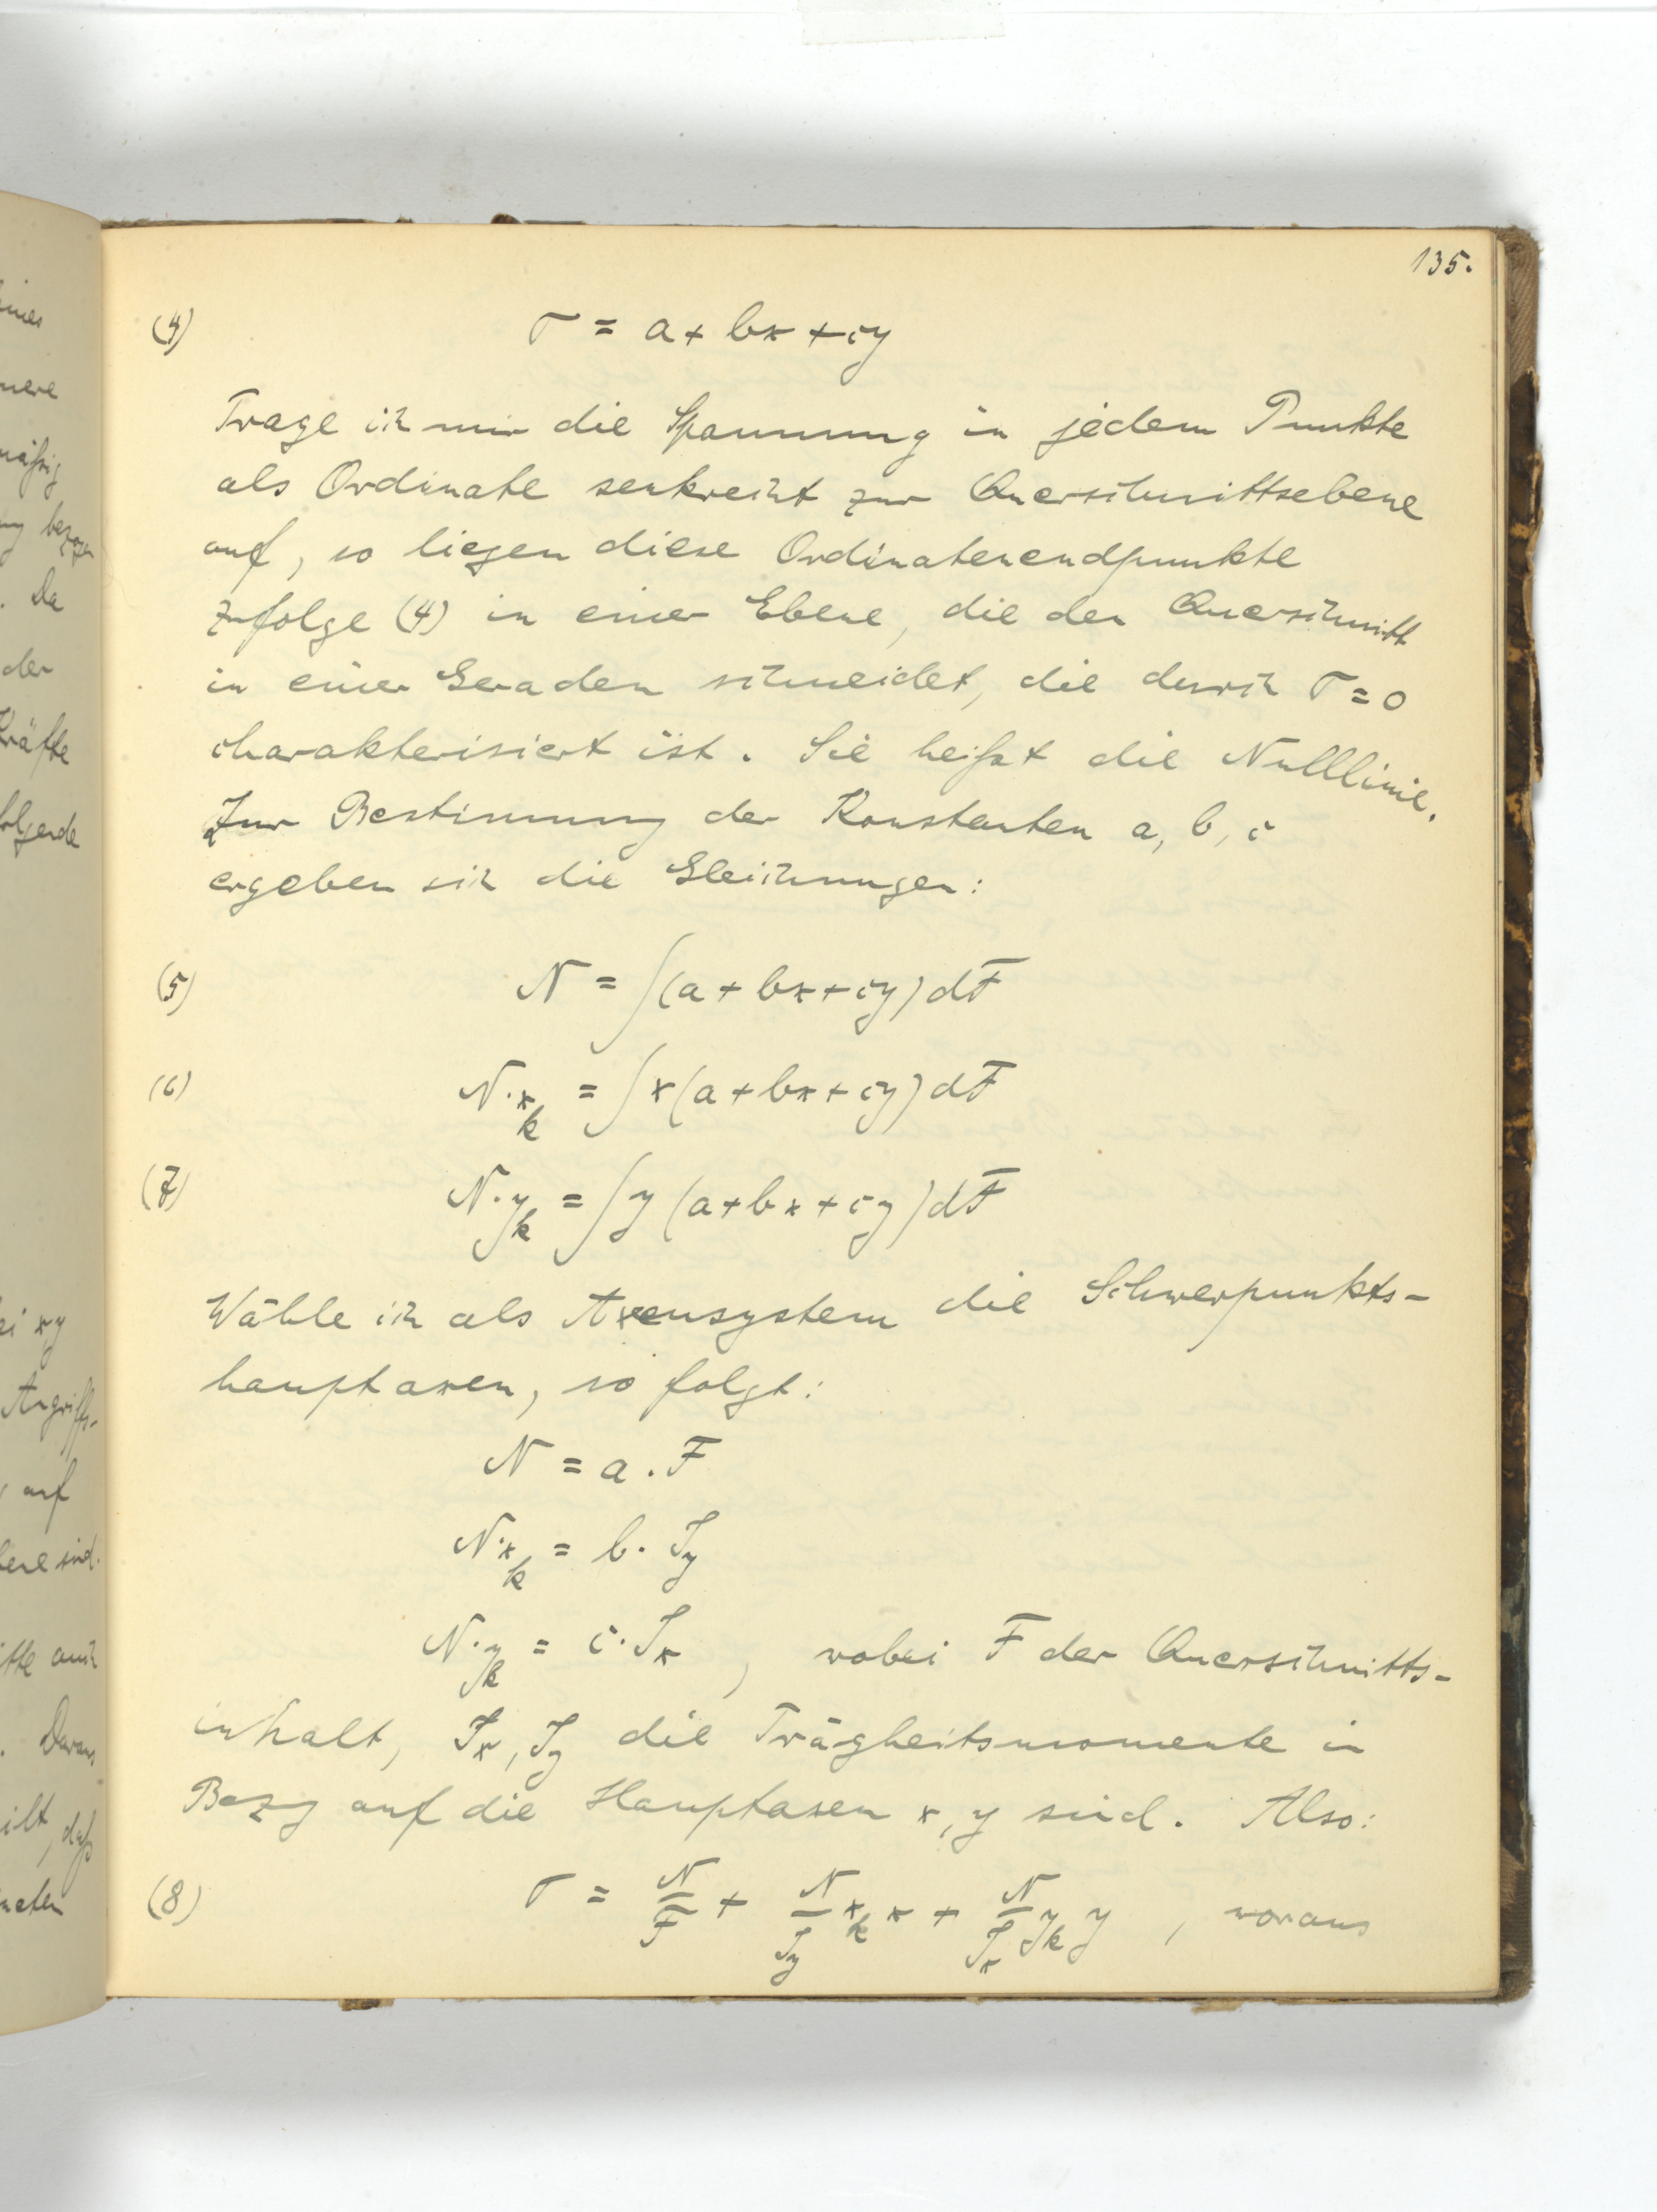 135.
(4) σ = a + bx + cy
Trage ich mir die Spannung in jedem Punkte
als Ordinate senkrecht zur Querschnittsebene
auf, so liegen diese Ordinatenendpunkte
zufolge (4) in einer Ebene, die den Querschnitt
in einer Geraden schneidet, die durch σ = 0
charakterisiert ist. Sie heißt die Nulllinie.
Zur Bestimmung der Konstanten a, b, c
ergeben sich die Gleichungen:
(5) N = ∫(a + bx + cy) dF
(6) N·x_k = ∫x(a + bx + cy) dF
(7) N·y_k = ∫y(a + bx + cy) dF
Wähle ich als Axensystem die Schwerpunkts-
hauptaxen, so folgt:
N = a . F
N·x_k = b · J_y
N·y_k = c · J_x , wobei F der Querschnitts-
inhalt, J_x, J_y die Trägheitsmomente in
Bezug auf die Hauptaxen x, y sind. Also:
(8) σ = N/F + N/J_y x_k x + N/J_x y_k y , woraus
eines
mässig
bezogen
. Da
der
Kräfte
folgende
ei xy
Angriffs-
auf
sind.
auch
. Daraus
ilt, daß